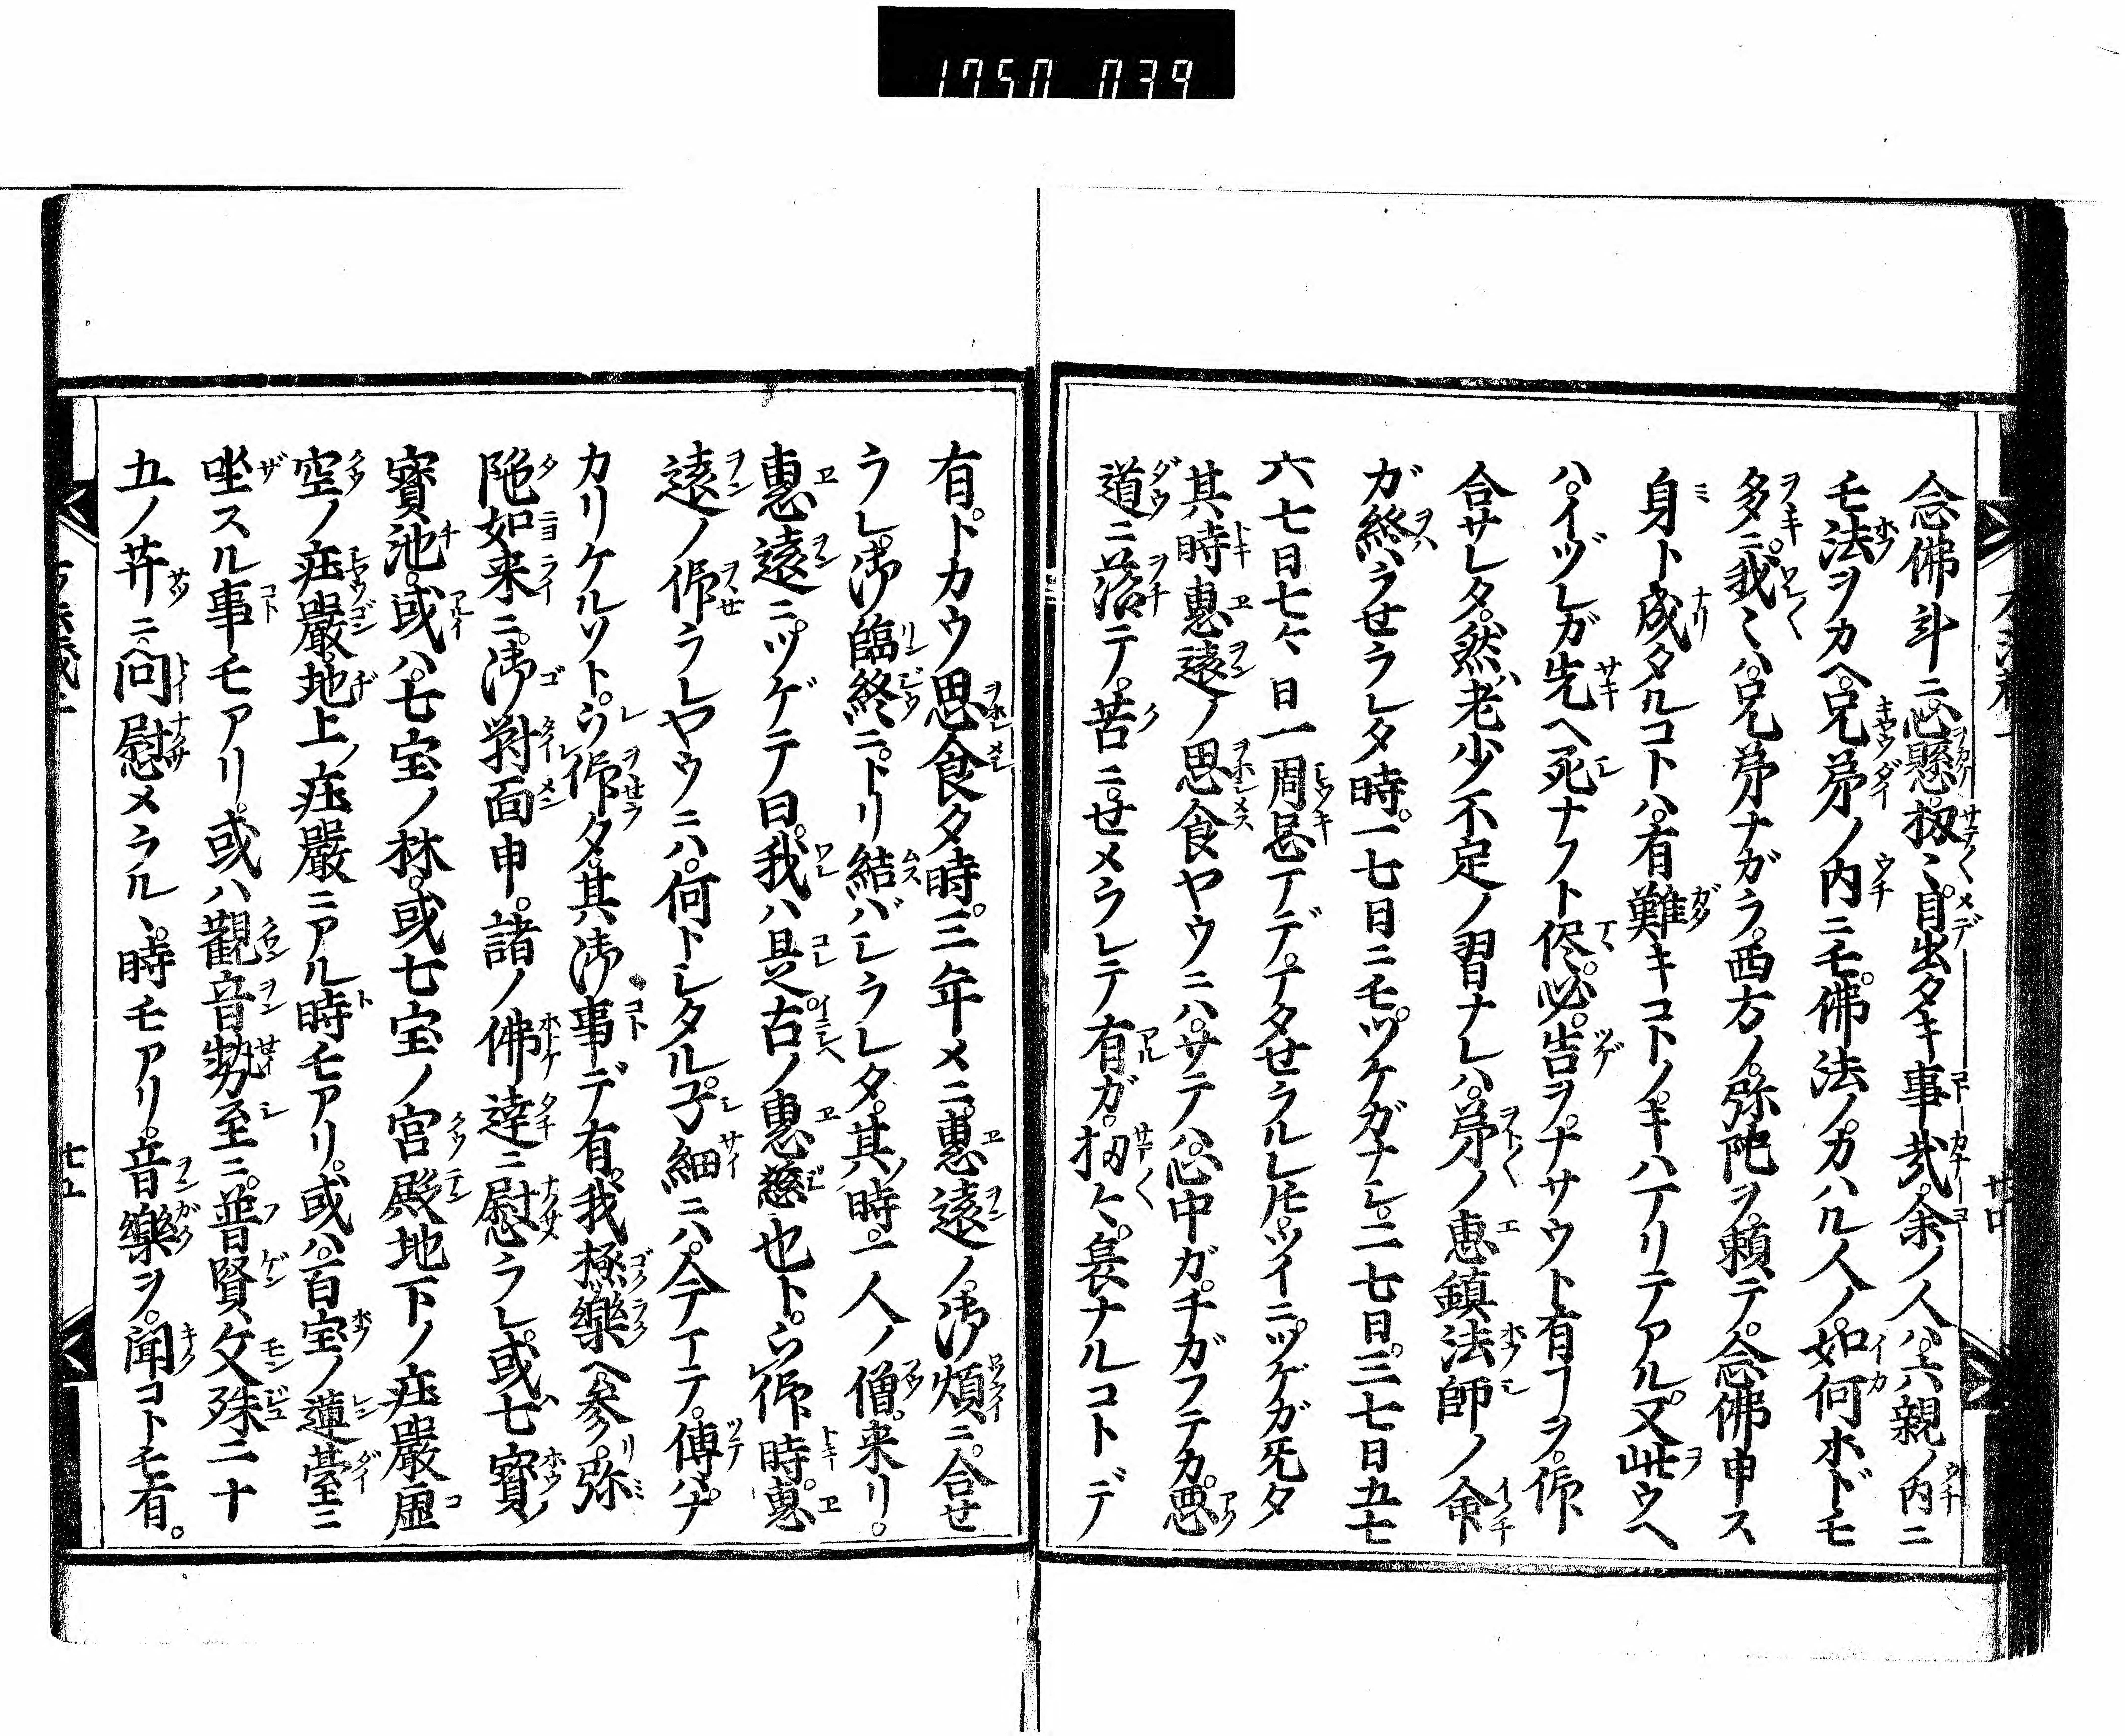 1750 039
念佛斗ニ心懸。扨〻。目出タキ事哉。余ノ人ハ。六親ノ内ニ
モ法ヲカヘ。兄弟ノ内ニモ。佛法ノカハル人ノ。如何ホドモ
多ニ。我〻ハ。兄弟ナガラ。西方ノ。弥陀ヲ。頼テ。念佛申ス
身ト成タルコトハ。有難キコトノ。キハアリテアル。又此ウヘ
ハ。イヅレガ先ヘ死ナフト侭。必。告ヲ。ナサウト有ヿヲ。仰
合サレタ。然ハ老少不定ノ習ナレハ。弟ノ惠鎮法師ノ命
ガ終ハラせラレタ時。一七日ニモ。ツケガナシ。二七日。三七日五七
六七日七々日一周忌マデ。マタせラルレ𪜈。ツイニ。ツゲガ无タ
其時惠遠ノ思食ヤウニハ。サテハ。心中ガ。チガフテカ。悪
道ニ落テ。苦ニ。せメラレテ有ガ。扨々。哀ナルコトデ
有。トカウ思食タ時。三年メニ。惠遠ノ。御煩ニ。合せ
ラレ。御臨終ニ。トリ結バレラレタ。其ノ時。一人ノ僧。来リ。
惠遠ニ。ツゲテノ曰。我ハ是。古ノ惠慈也ト。ウ仰時。惠
遠ノ仰ラレヤウニハ。何トレタル。子細ニハ。今マテ。傳ハナ
カリケルソト。ウ仰タ。其御事デ有。我極樂ヘ参。弥
陁如来ニ。御對面申。諸ノ佛達ニ慰ラレ。或七寶ノ
寳池。或ハ。七宝ノ林。或七宝ノ宮殿地下ノ荘嚴虚
空ノ荘嚴地上ノ荘嚴ニアル時モアリ。或ハ百宝ノ蓮臺ニ
坐スル事モアリ。或ハ觀音勢至ニ。普賢文殊二十
五ノ菩薩ニ問慰メラル丶時モアリ。音樂ヲ。聞コトモ有。